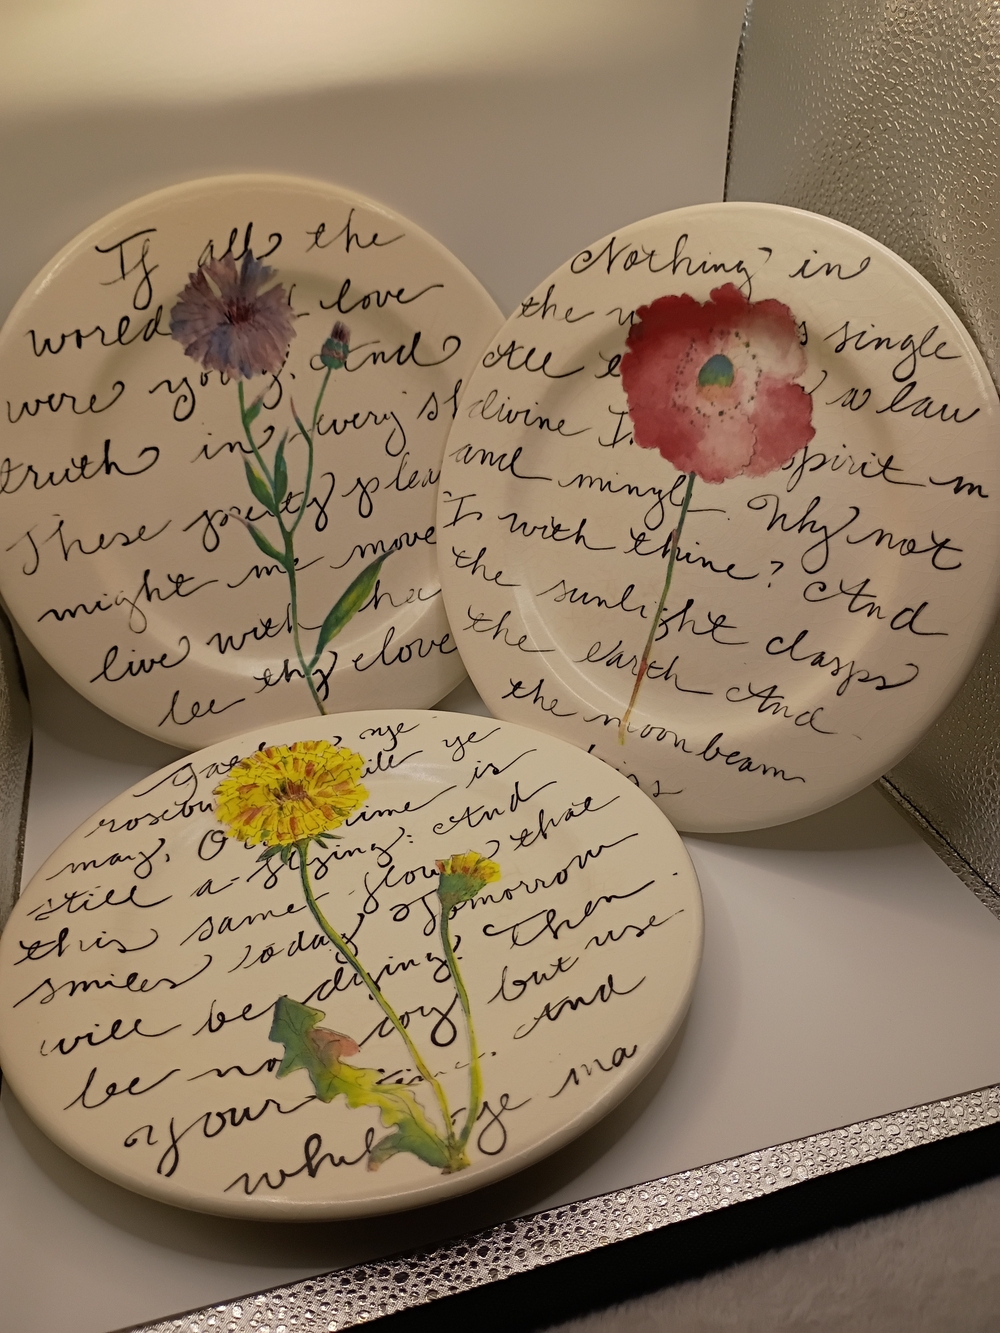 If all the
world love
were young. And
truth in every sh
These pretty plea
might me move
live with the
be thy love
Nothing in
the w s single
All t a law
divine I. spirit m
and mingle. Why not
I with thine? And
the sunlight clasps
the earth And
the moonbeam
Gather ye
rosebu while ye
may, O time is
still a-flying: And
this same flower that
smiles today Tomorrow
will be dying. Then
be not coy but use
your time. And
while ye ma